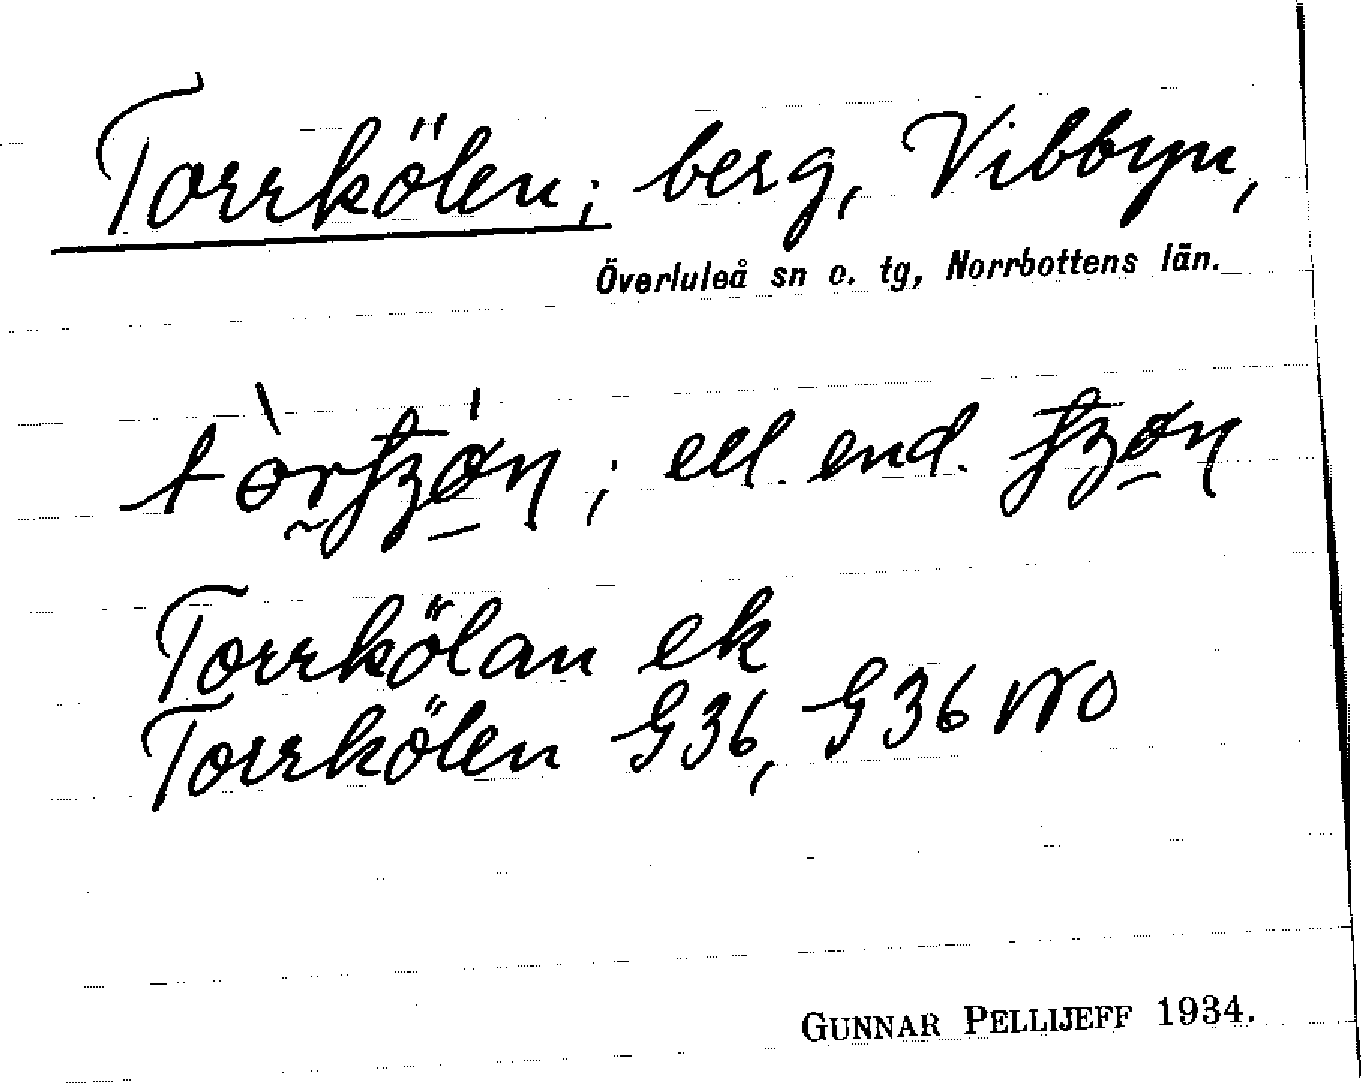 Torrkölen; berg, Vibbyn,
Överluleå sn o. tg, Norrbottens län.
; ell. end.
Torrkölan ek
Torrkölen G36, G36 No
GUNNAR PELLIJEFF 1934.